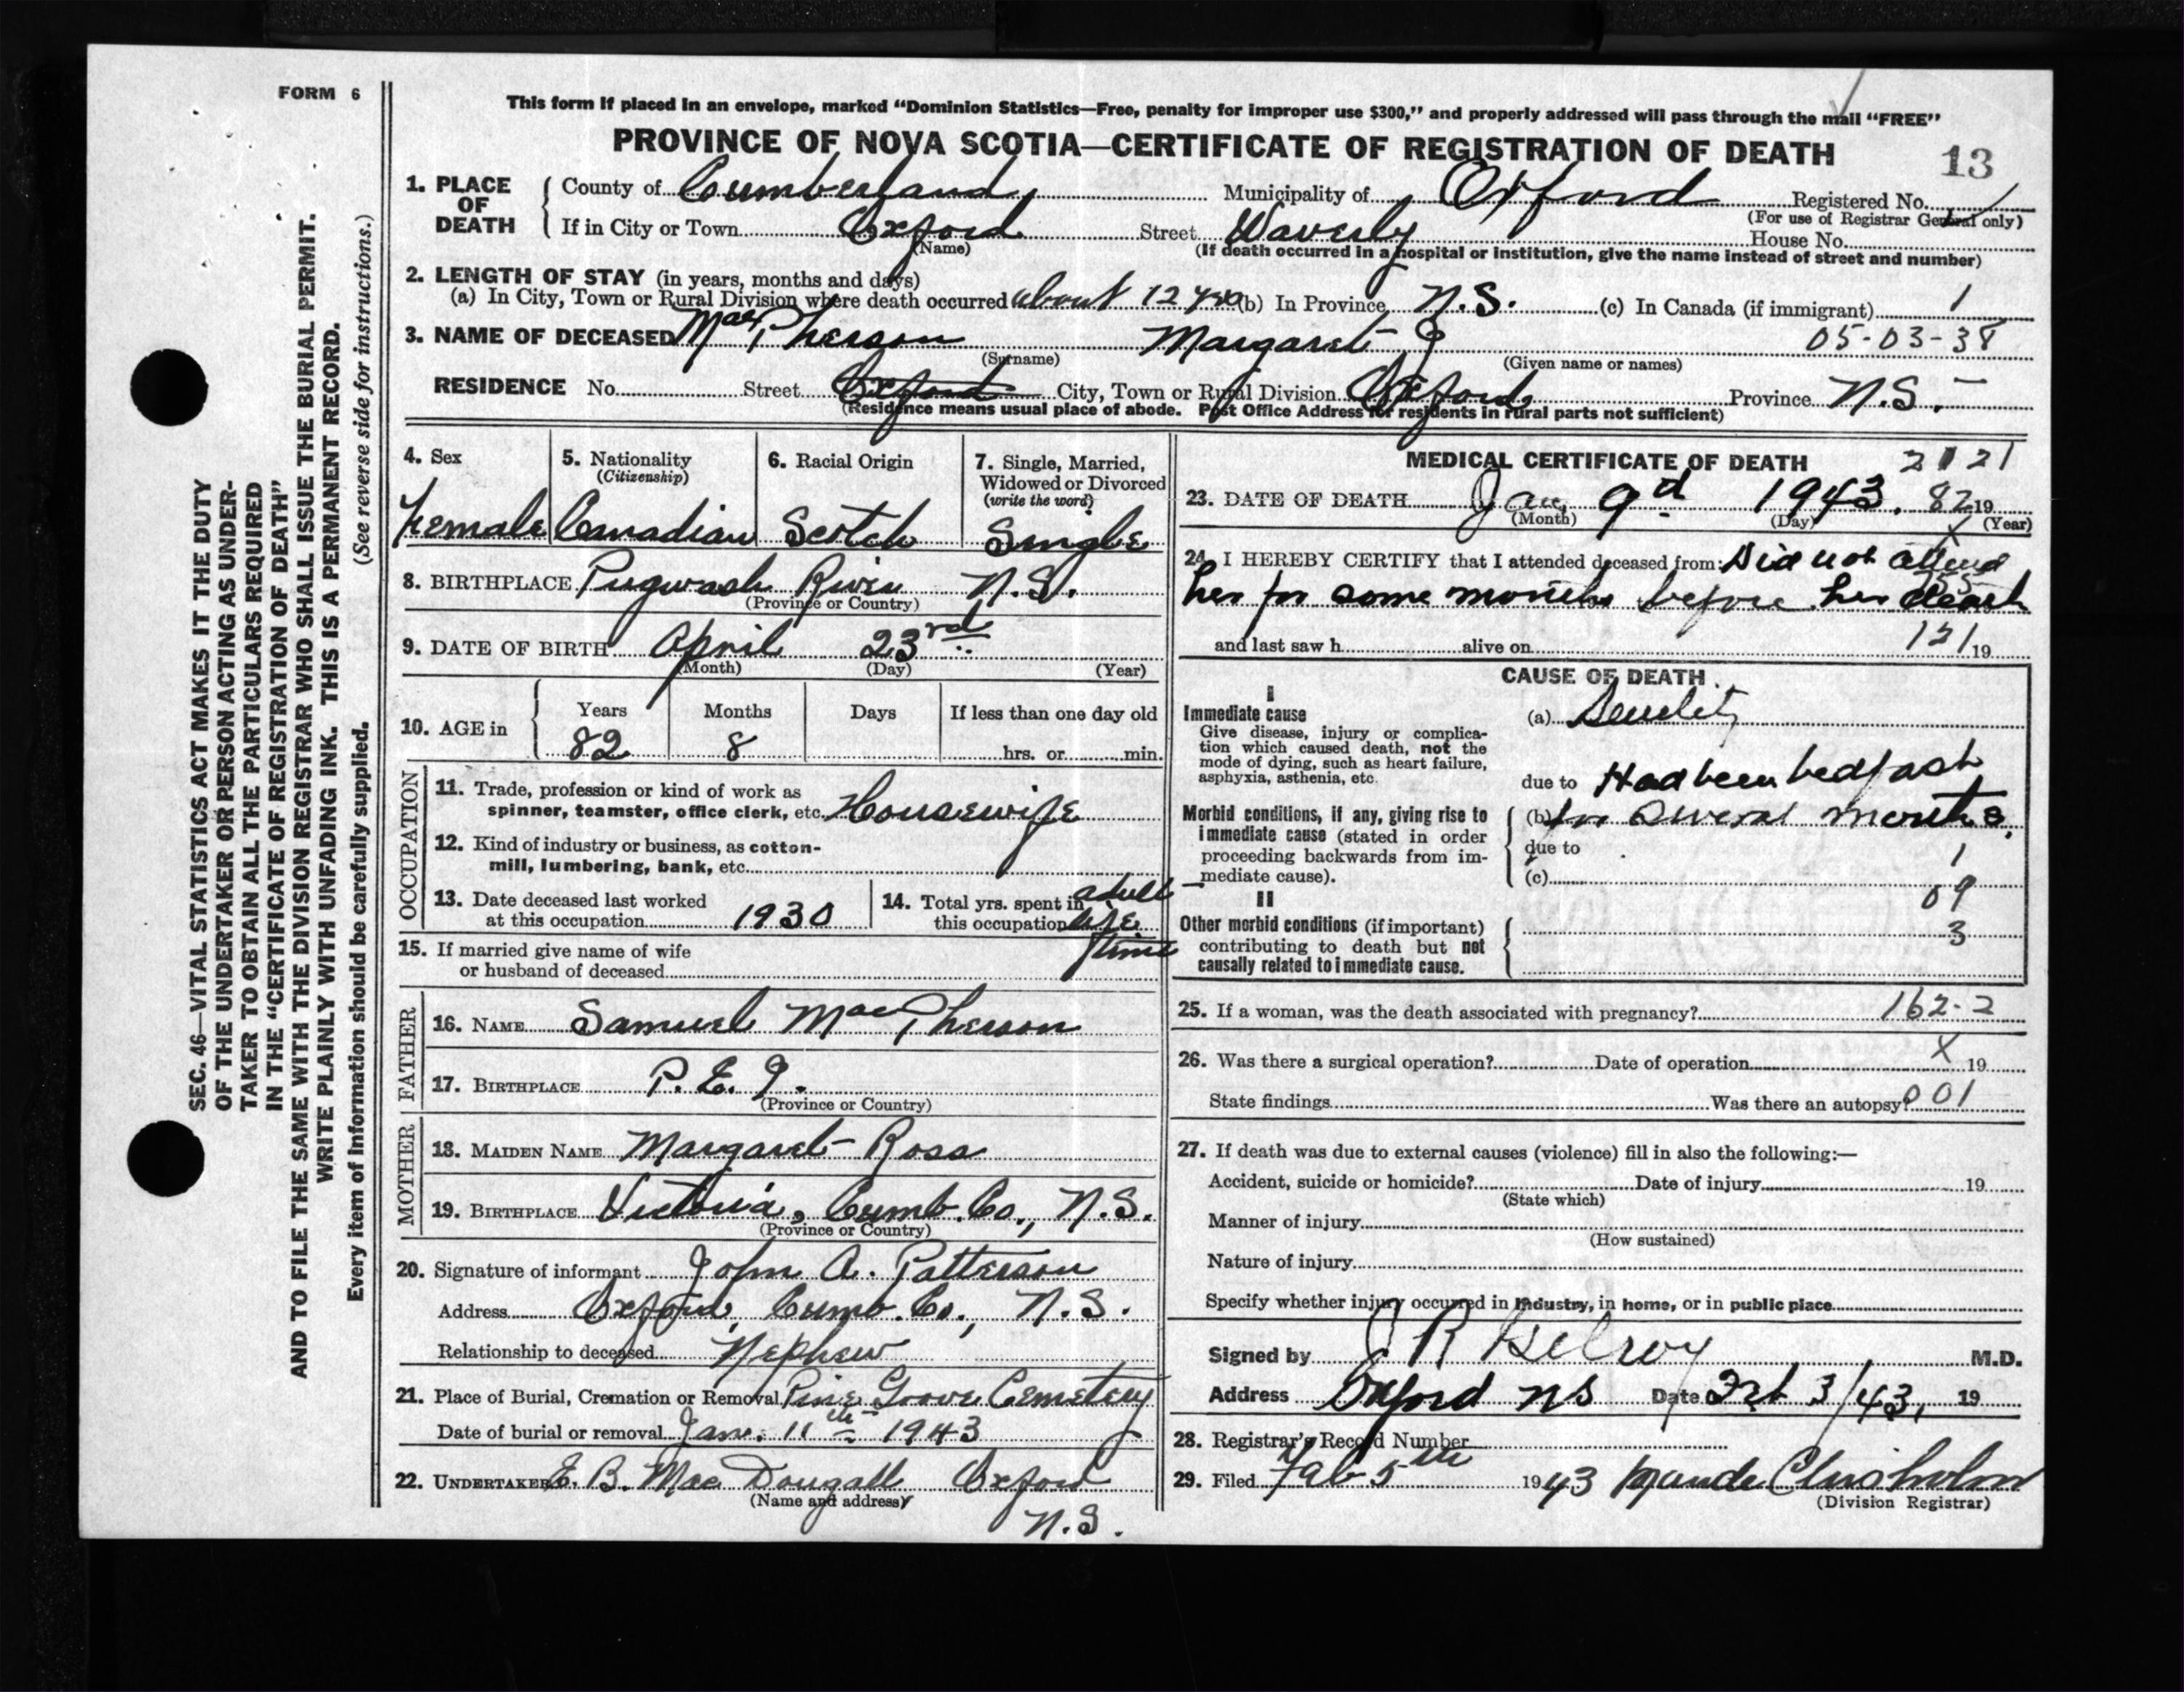 FORM 6
This form if placed in an envelope, marked “Dominion Statistics—Free, penalty for improper use $300,” and properly addressed will pass through the mail “FREE”
PROVINCE OF NOVA SCOTIA—CERTIFICATE OF REGISTRATION OF DEATH 13
1. PLACE OF DEATH County of Cumberland Municipality of Oxford Registered No.
(For use of Registrar General only)
If in City or Town Oxford Street Waverly House No.
(Name) (If death occurred in a hospital or institution, give the name instead of street and number)
2. LENGTH OF STAY (in years, months and days)
(a) In City, Town or Rural Division where death occurred about 12 yrs (b) In Province N.S. (c) In Canada (if immigrant) 1
3. NAME OF DECEASED MacPherson Margaret J 05-03-38
(Surname) (Given name or names)
RESIDENCE No. Street Oxford City, Town or Rural Division Oxford Province N.S.
(Residence means usual place of abode. Post Office Address for residents in rural parts not sufficient)
4. Sex 5. Nationality 6. Racial Origin 7. Single, Married,
(Citizenship) Widowed or Divorced
(write the word)
Female Canadian Scotch Single
8. BIRTHPLACE Pugwash River N.S.
(Province or Country)
9. DATE OF BIRTH April 23rd
(Month) (Day) (Year)
10. AGE in Years Months Days If less than one day old
82 8 hrs. or min.
OCCUPATION
11. Trade, profession or kind of work as
spinner, teamster, office clerk, etc. Housewife
12. Kind of industry or business, as cotton-
mill, lumbering, bank, etc.
13. Date deceased last worked
at this occupation 1930
14. Total yrs. spent in adult
this occupation life
time
15. If married give name of wife
or husband of deceased
FATHER
16. NAME Samuel MacPherson
17. BIRTHPLACE P.E.I.
(Province or Country)
MOTHER
18. MAIDEN NAME Margaret Ross
19. BIRTHPLACE Victoria, Cumb. Co., N.S.
(Province or Country)
20. Signature of informant John A. Patterson
Address Oxford, Cumb. Co., N.S.
Relationship to deceased Nephew
21. Place of Burial, Cremation or Removal Pine Grove Cemetery
Date of burial or removal Jan. 11th 1943
22. UNDERTAKER B. MacDougall Oxford
(Name and address)
N.S.
MEDICAL CERTIFICATE OF DEATH 2121
23. DATE OF DEATH Jan 9d 1943. 82 19
(Month) (Day) (Year)
24. I HEREBY CERTIFY that I attended deceased from: Did not attend
her for some months before her death
and last saw h alive on 121 19
CAUSE OF DEATH
I
Immediate cause
Give disease, injury or complica-
tion which caused death, not the
mode of dying, such as heart failure,
asphyxia, asthenia, etc.
(a) Senility
due to Had been bedfast
Morbid conditions, if any, giving rise to
immediate cause (stated in order
proceeding backwards from im-
mediate cause).
(b) for several months.
due to 1
(c)
09
II
Other morbid conditions (if important)
contributing to death but not
causally related to immediate cause.
3
25. If a woman, was the death associated with pregnancy? 162-2
26. Was there a surgical operation? Date of operation X 19
State findings Was there an autopsy? 001
27. If death was due to external causes (violence) fill in also the following:—
Accident, suicide or homicide? Date of injury 19
(State which)
Manner of injury
(How sustained)
Nature of injury
Specify whether injury occurred in industry, in home, or in public place
Signed by M.D.
Address Oxford NS Date Feb 3/43, 19
28. Registrar's Record Number
29. Filed Feb 5th 1943 Maude Chisholm
(Division Registrar)
SEC. 46—VITAL STATISTICS ACT MAKES IT THE DUTY
OF THE UNDERTAKER OR PERSON ACTING AS UNDER-
TAKER TO OBTAIN ALL THE PARTICULARS REQUIRED
IN THE “CERTIFICATE OF REGISTRATION OF DEATH”
AND TO FILE THE SAME WITH THE DIVISION REGISTRAR WHO SHALL ISSUE THE BURIAL PERMIT.
WRITE PLAINLY WITH UNFADING INK. THIS IS A PERMANENT RECORD.
Every item of information should be carefully supplied. (See reverse side for instructions.)